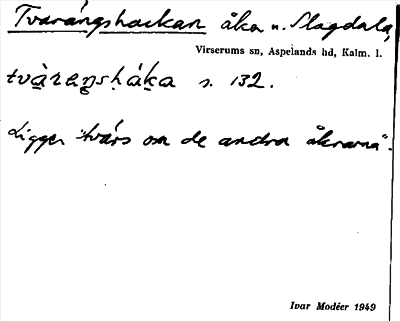 Tvarångshackan åka u. Slagdala,
Virserums sn, Aspelands hd, Kalm. l.
tvàrengsháka s. 132.
Ligger "tvärs om de andra åkrarna".
Ivar Modéer 1949